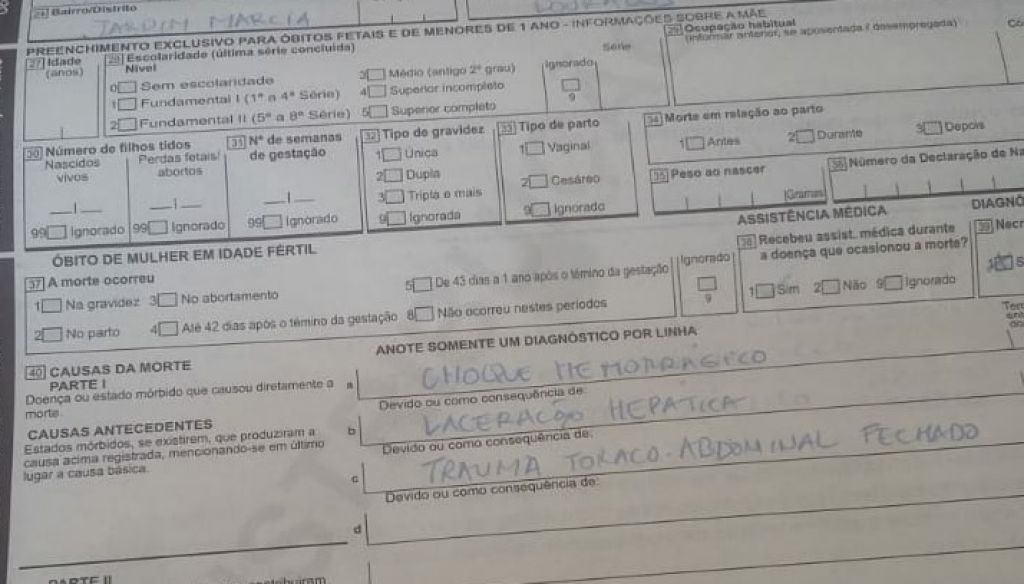 24 Bairro/Distrito
JARDIM MARCIA
DOURADOS
PREENCHIMENTO EXCLUSIVO PARA ÓBITOS FETAIS E DE MENORES DE 1 ANO - INFORMAÇÕES SOBRE A MÃE
27 Idade
(anos)
28 Escolaridade (última série concluída)
Nível
Série
0 Sem escolaridade
1 Fundamental I (1ª a 4ª Série)
2 Fundamental II (5ª a 8ª Série)
3 Médio (antigo 2º grau)
4 Superior incompleto
5 Superior completo
Ignorado
9
29 Ocupação habitual
(informar anterior, se aposentada / desempregada)
30 Número de filhos tidos
Nascidos
vivos
Perdas fetais/
abortos
99 Ignorado 99 Ignorado
31 Nº de semanas
de gestação
99 Ignorado
32 Tipo de gravidez
1 Única
2 Dupla
3 Tripla e mais
9 Ignorada
33 Tipo de parto
1 Vaginal
2 Cesáreo
9 Ignorado
34 Morte em relação ao parto
1 Antes 2 Durante 3 Depois
35 Peso ao nascer
Gramas
36 Número da Declaração de Na
ÓBITO DE MULHER EM IDADE FÉRTIL
37 A morte ocorreu
1 Na gravidez 3 No abortamento
5 De 43 dias a 1 ano após o témino da gestação
2 No parto 4 Até 42 dias após o témino da gestação 8 Não ocorreu nestes períodos
Ignorado
9
ASSISTÊNCIA MÉDICA
38 Recebeu assist. médica durante
a doença que ocasionou a morte?
1 Sim 2 Não 9 Ignorado
DIAGNÓ
39 Necr
1 S
ANOTE SOMENTE UM DIAGNÓSTICO POR LINHA
40 CAUSAS DA MORTE
PARTE I
Doença ou estado mórbido que causou diretamente a
morte.
a CHOQUE HEMORRÁGICO
Devido ou como consequência de:
CAUSAS ANTECEDENTES
Estados mórbidos, se existirem, que produziram a
causa acima registrada, mencionando-se em último
lugar a causa básica.
b LACERAÇÃO HEPATICA
Devido ou como consequência de:
c TRAUMA TORACO-ABDOMINAL FECHADO
Devido ou como consequência de:
d
PARTE II